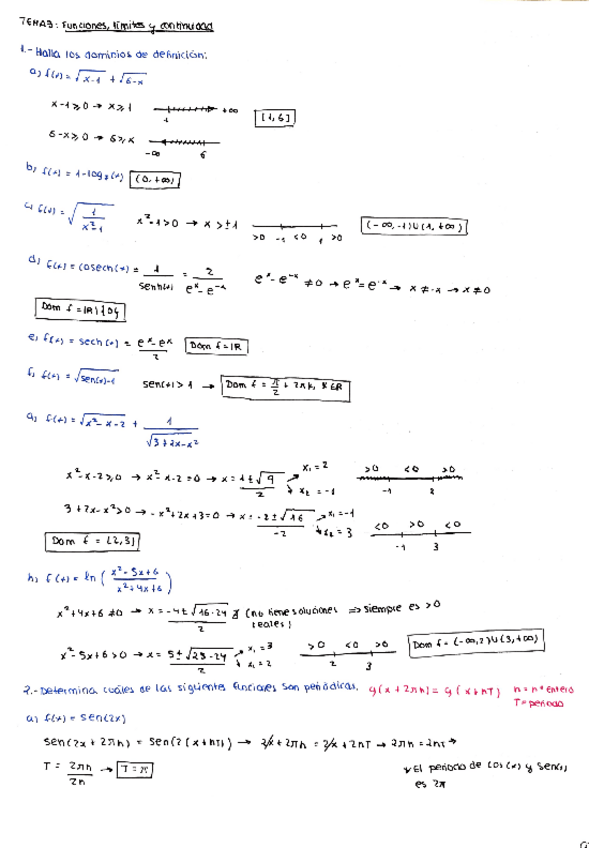 TEMA 3: Funciones, límites y continuidad
1.- Halla los dominios de definición:
a) f(x) = √x-1 + √6-x
x-1 ≥ 0 → x ≥ 1   1   +∞   [1, 6]
6-x ≥ 0 → 6 ≥ x   -∞   6
b) f(x) = 1-log₃(x)   (0, +∞)
c) f(x) = √(1/(x²-1))   x²-1 > 0 → x > ±1   >0 -1 <0 1 >0   (-∞, -1) U (1, +∞)
d) f(x) = cosech(x) = 1/senh(x) = 2/(eˣ-e⁻ˣ)   eˣ-e⁻ˣ ≠ 0 → eˣ = e⁻ˣ → x ≠ -x → x ≠ 0
Dom f = IR \ {0}
e) f(x) = sech(x) = (eˣ-eˣ)/2   Dom f = IR
f) f(x) = √sen(x)-1   sen(x) > 1 → Dom f = π/2 + 2πk,
g) f(x) = √x²-x-2 + 1/√3+2x-x²
x²-x-2 ≥ 0 → x²-x-2 = 0 → x = (1±√9)/2   x₁ = 2   x₂ = -1   >0 <0 >0   -1 2
3+2x-x² > 0 → -x²+2x+3 = 0 → x = (-2±√16)/-2   x₁ = -1   x₂ = 3   <0 >0 <0   -1 3
Dom f = [2, 3)
h) f(x) = ln ((x²-5x+6)/(x²+4x+6))
x²+4x+6 ≠ 0 → x = (-4±√16-24)/2 ∄ (no tiene soluciones reales) ⇒ siempre es >0
x²-5x+6 > 0 → x = (5±√25-24)/2   x₁ = 3   x₂ = 2   >0 <0 >0   2 3   Dom f = (-∞, 2) U (3, +∞)
2.- Determina cuáles de las siguientes funciones son periódicas. g(x+2πn) = g(x+nT)   n = nº entero
T = periodo
a) f(x) = sen(2x)
sen(2x+2πn) = sen(2(x+nT)) → 2x+2πn = 2x+2nT → 2πn = 2nT →
T = 2πn/2n → T = π   * El periodo de cos(x) y sen(x)
es 2π